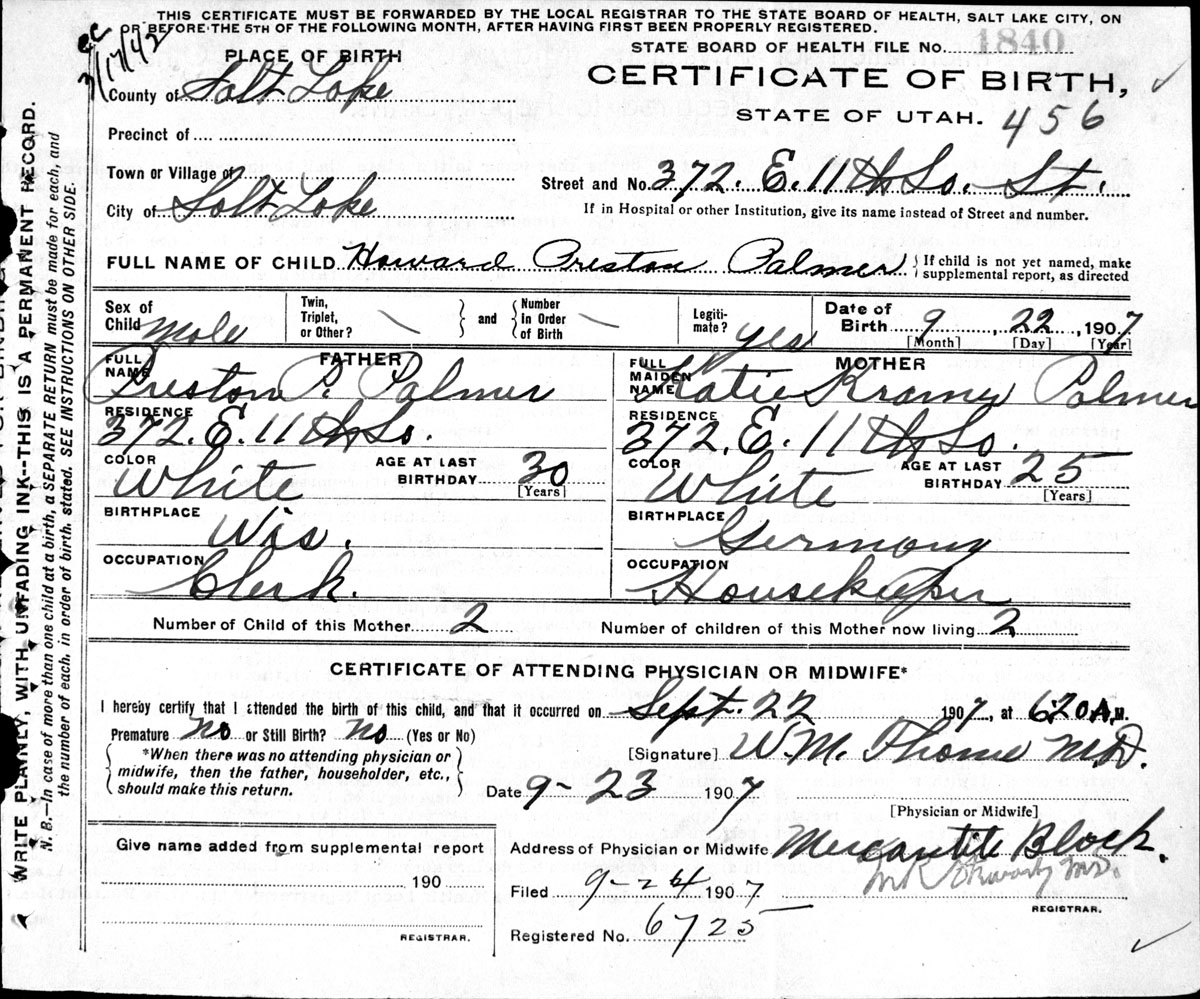 THIS CERTIFICATE MUST BE FORWARDED BY THE LOCAL REGISTRAR TO THE STATE BOARD OF HEALTH, SALT LAKE CITY, ON
OR BEFORE THE 5TH OF THE FOLLOWING MONTH, AFTER HAVING FIRST BEEN PROPERLY REGISTERED.
3/17/42
PLACE OF BIRTH
STATE BOARD OF HEALTH FILE No. 1840
County of Salt Lake
CERTIFICATE OF BIRTH,
STATE OF UTAH. 456
Precinct of
Town or Village of
Street and No. 372. E. 11th So. St.
City of Salt Lake
If in Hospital or other Institution, give its name instead of Street and number.
FULL NAME OF CHILD Howard Preston Palmer { If child is not yet named, make
supplemental report, as directed
Sex of Child Male
Twin, Triplet, or Other?
and
Number In Order of Birth
Legiti-mate? yes
Date of Birth 9, 22, 1907
[Month] [Day] [Year]
FATHER
FULL NAME Preston P. Palmer
MOTHER
FULL MAIDEN NAME Katie Kramer Palmer
RESIDENCE 372. E. 11th So.
RESIDENCE 372. E. 11th So.
COLOR White AGE AT LAST BIRTHDAY 30 [Years]
COLOR White AGE AT LAST BIRTHDAY 25 [Years]
BIRTHPLACE Wis.
BIRTHPLACE Germany
OCCUPATION Clerk.
OCCUPATION Housekeeper
Number of Child of this Mother 2
Number of children of this Mother now living 2
CERTIFICATE OF ATTENDING PHYSICIAN OR MIDWIFE*
I hereby certify that I attended the birth of this child, and that it occurred on Sept. 22 1907, at 6:20 A.M.
Premature No or Still Birth? No (Yes or No)
*When there was no attending physician or
midwife, then the father, householder, etc.,
should make this return.
[Signature] W. M. Thome M.D.
Date 9-23 1907
[Physician or Midwife]
Give name added from supplemental report
190
REGISTRAR.
Address of Physician or Midwife Mercantile Block.
Filed 9-24 1907
REGISTRAR.
Registered No. 6725
WRITE PLAINLY, WITH UNFADING INK--THIS IS A PERMANENT RECORD.
N. B.—In case of more than one child at birth, a SEPARATE RETURN must be made for each, and
the number of each, in order of birth, stated. SEE INSTRUCTIONS ON OTHER SIDE.